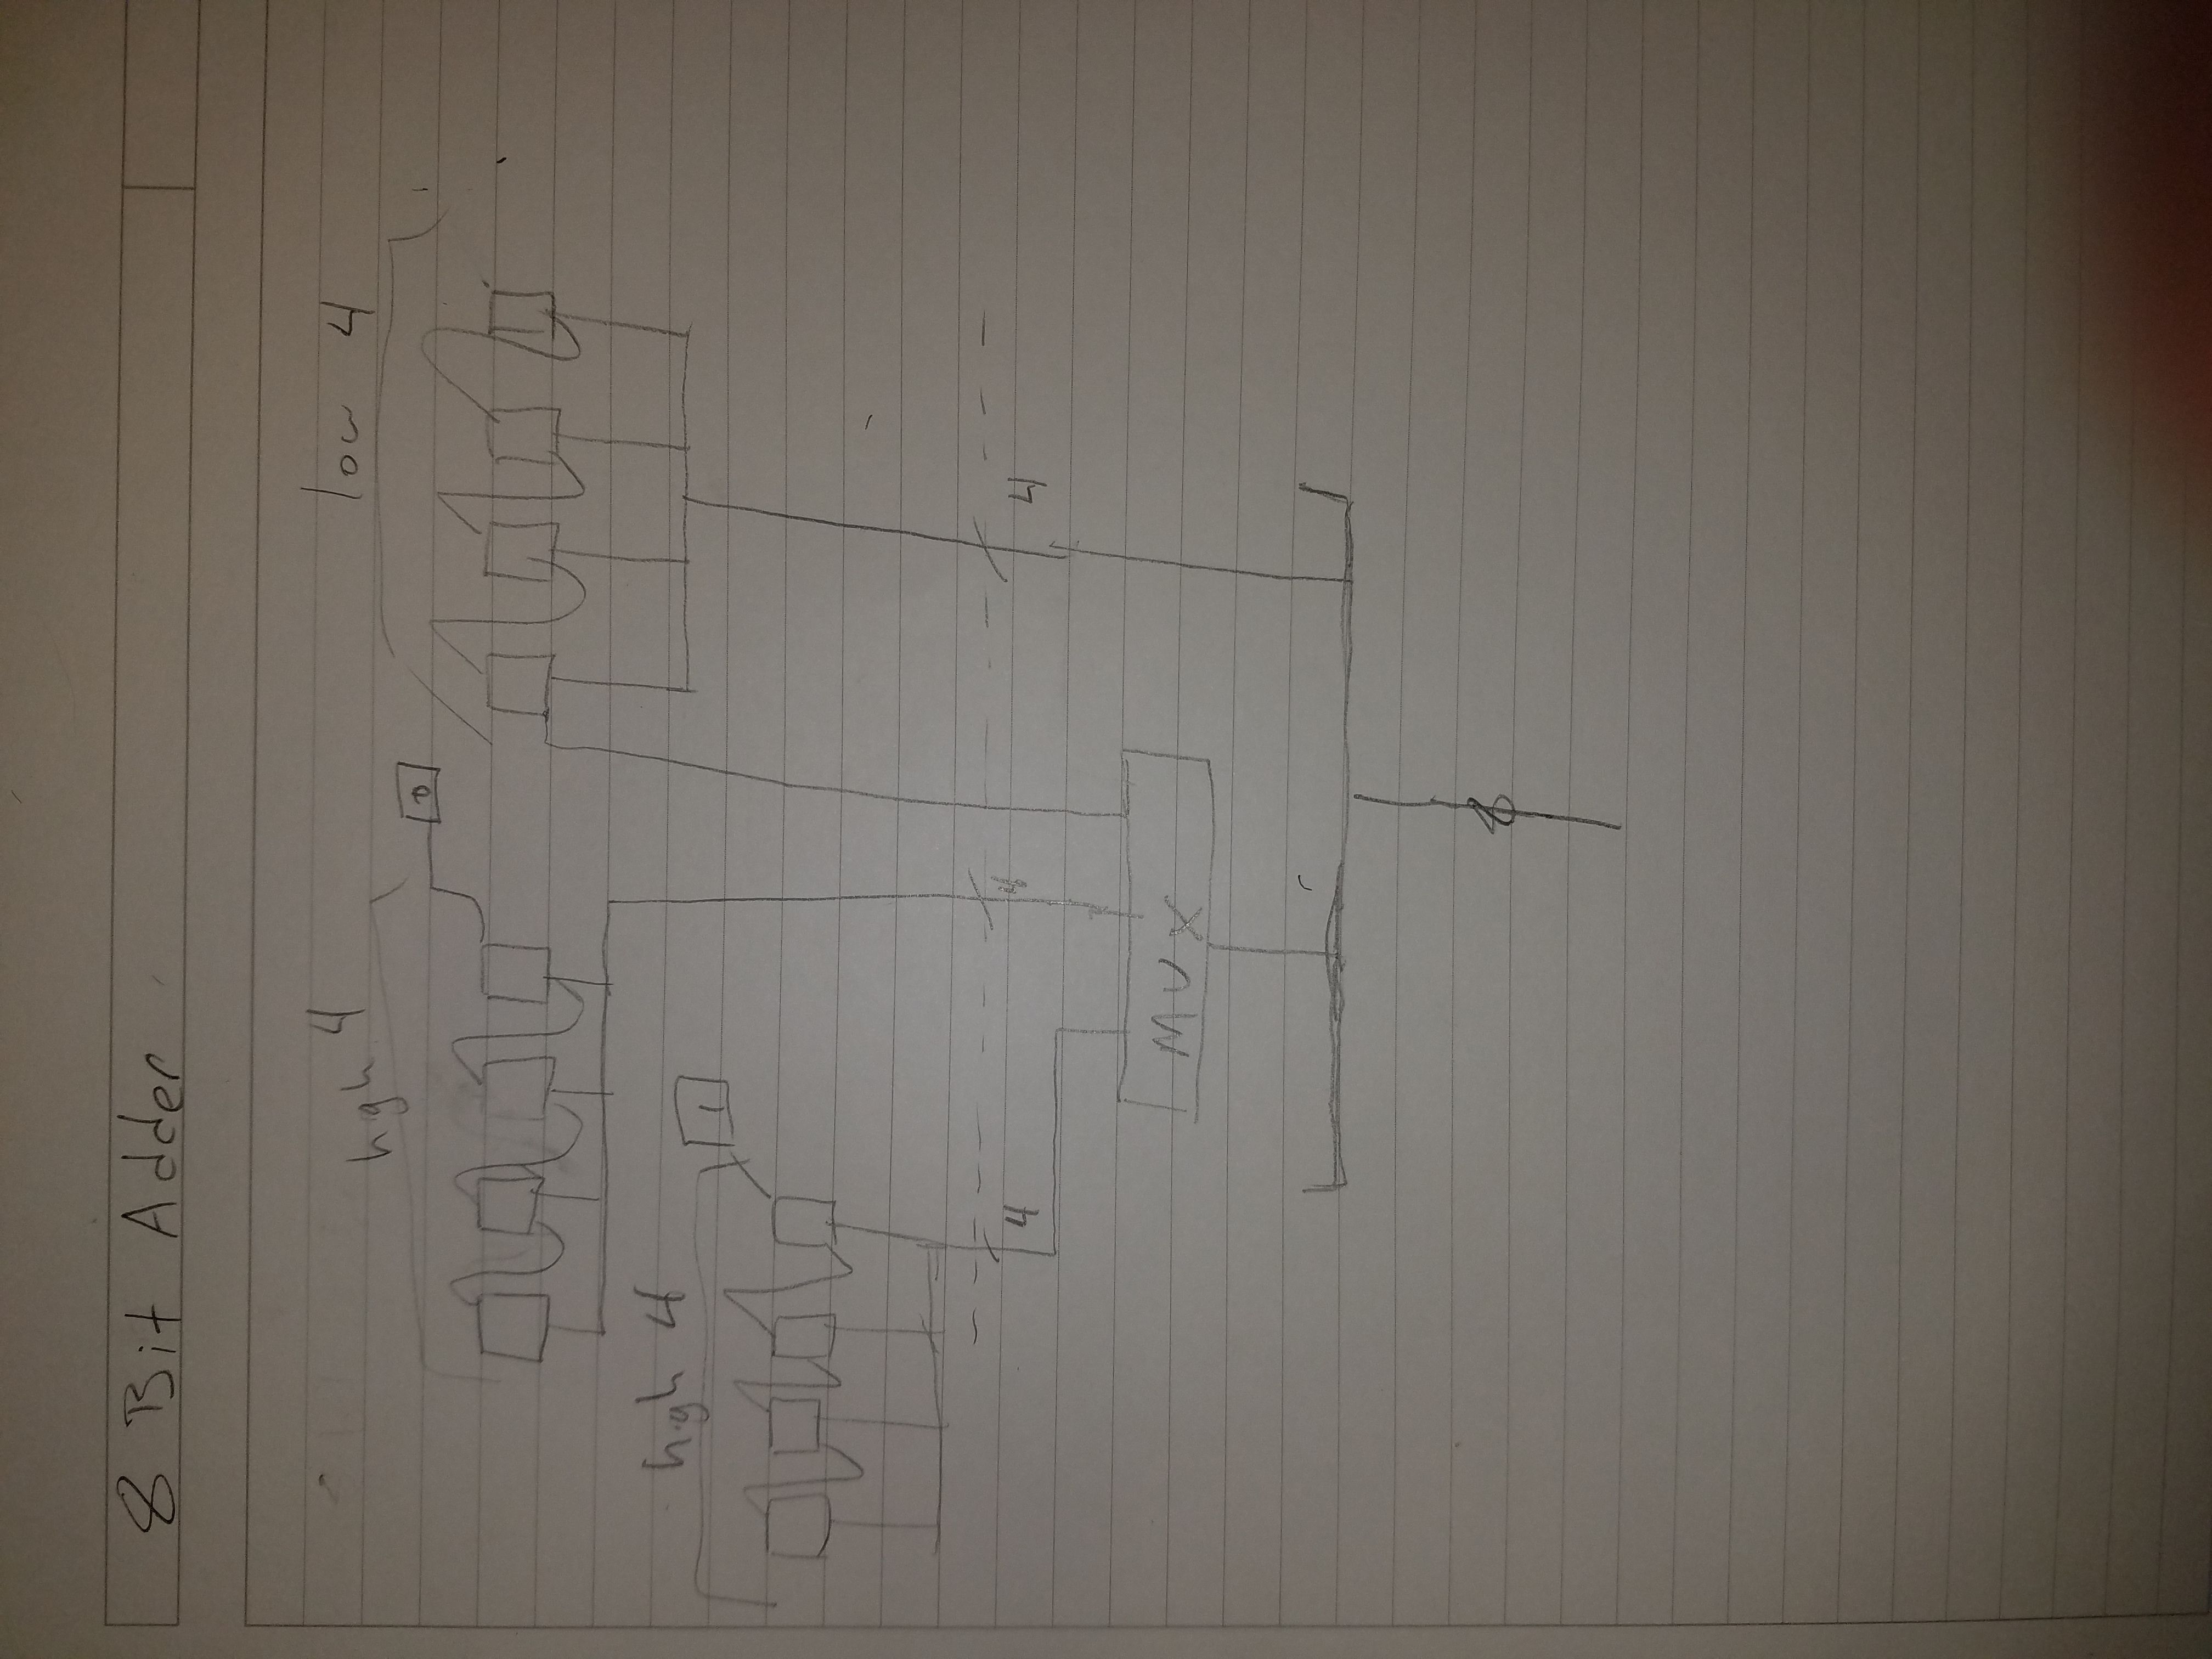 8 Bit Adder
high 4
low 4
0
high 4
1
4
4
4
MUX
8